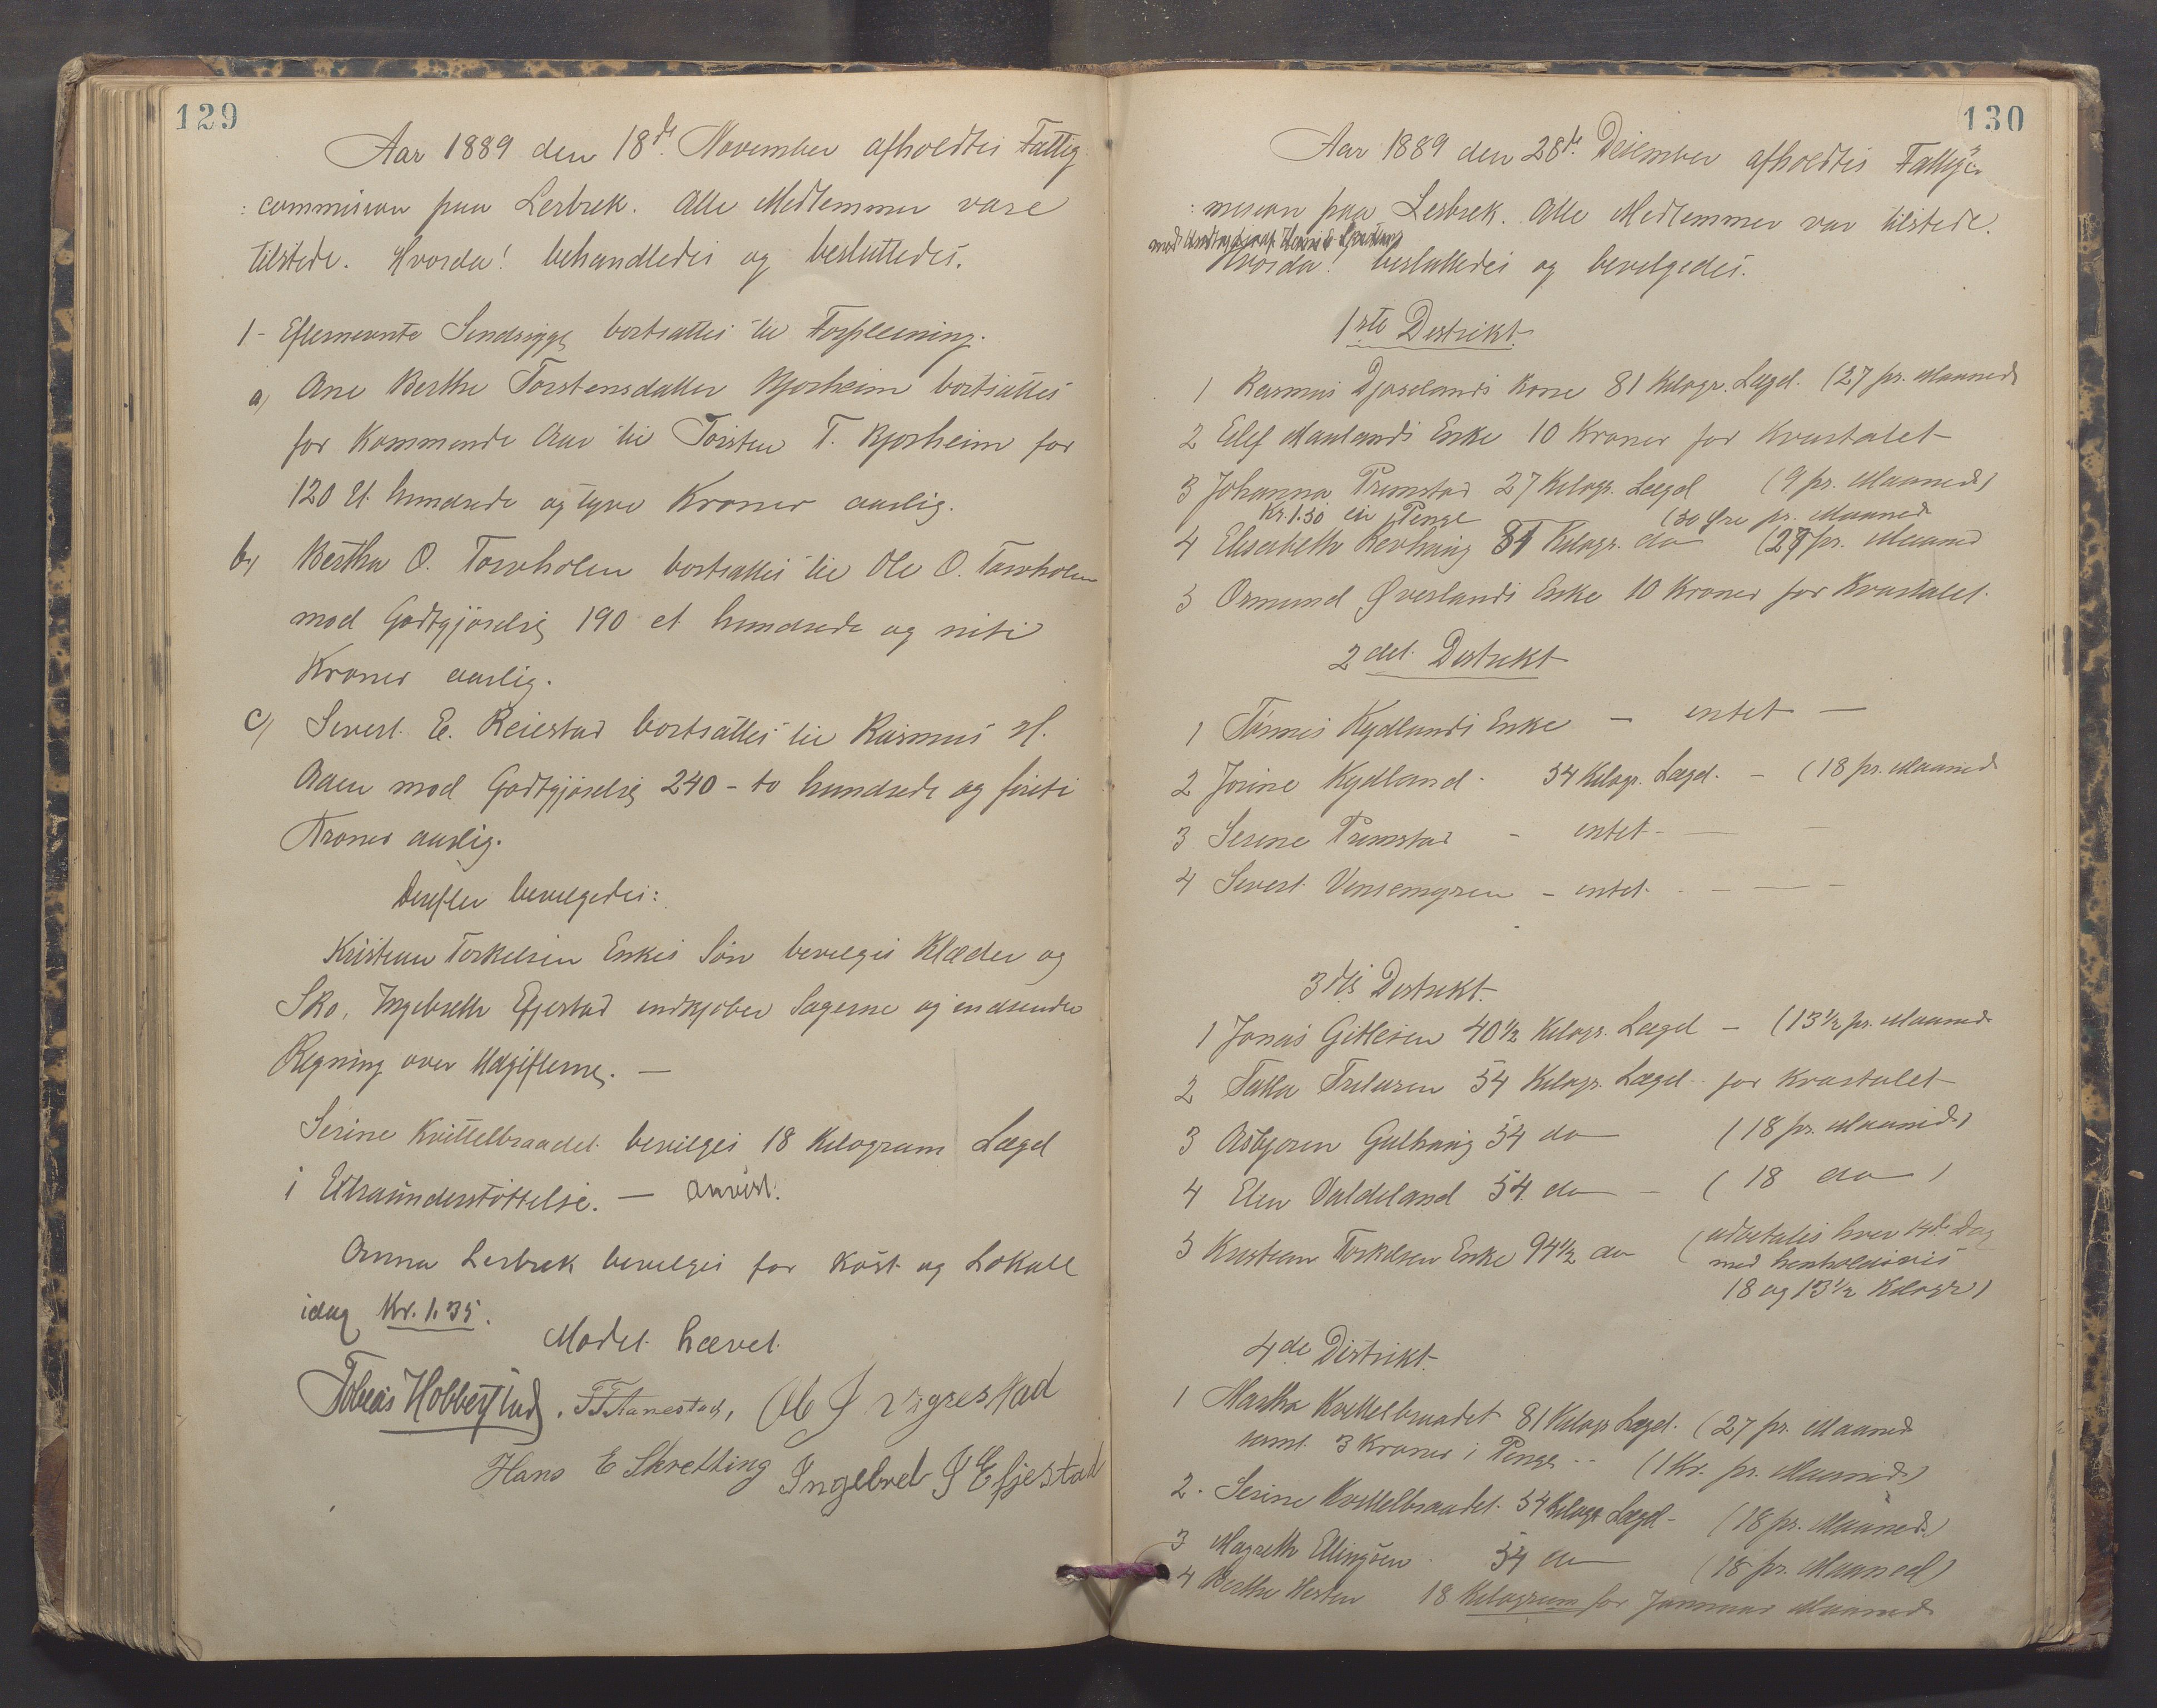 129
Aar 1889 den 18de November afholdtes Fattig
:commision paa Lerbrek. Alle Medlemmer vare
tilstede. Hvorda! behandledes og besluttedes.
1- Efternevnte Sindsyge bortsattes til Forpleining.
a) Ane Berthe Torstensdatter Bjorheim bortsattes
for Kommende Aar til Torsten T. Bjorheim for
120 Et hundrede og tyve Kroner aarlig.
b) Bertha O. Torvholen bortsattes til Ole O. Torvholen
mod Godtgjörelse 190 et hundrede og niti
Kroner aarlig.
c) Sivert E. Reiestad bortsattes til Rasmus H.
Aaen mod Godtgjörelse 240 - to hundrede og firti
Kroner aarlig.
Derefter bevilgedes:
Kristian Torkelsen Enkes Sön bevilges Klæder og
Sko, Ingebreth Efjestad indkjöber Sagerne og indsender
Regning over Udgifterne. —
Serine Kvittelbraadet bevilges 18 Kilogram Lægd
i Extraunderstöttelse. — anvist.
Anna Lerbrek bevilges for Kost og Lokale
idag Kr. 1.35.
Mödet hævet.
Tobeas Hobberstad, T T Aanestad, Ole J Vigrestad
Hans E Skretting Ingebret J Efjestad
130
Aar 1889 den 28de Desember afholdtes Fattigco
:mision paa Lerbrek. Alle Medlemmer var tilstede.
med Undtagelse af Hans E Skretting
Hvorda! besluttedes og bevilgedes.
1ste Distrikt.
1 Rasmus Djoselands Kone 81 Kilogr. Lægd. (27 pr. Maaned
2 Elef Maulands Enke 10 Kroner for Kvartalet
3 Johanna Tremstad 27 Kilogr. Lægd (9 pr. Maaned)
Kr. 1.50 i Penge (50 Øre pr. Maaned
4 Elisabeth Revhaug 81 Kilogr. do (27 pr. Maaned
5 Osmund Øverlands Enke 10 Kroner for Kvartalet.
2det Distrikt
1 Tönnes Kydlands Enke — intet —
2 Josine Kydland - 54 Kilogr. Lægd. - (18 pr. Maaned
3 Serene Tremstad - intet -
4 Sivert Vensemyren - intet -
3die Distrikt.
1 Jonas Gitlesen 40 1/2 Kilogr. Lægd - (13 1/2 pr. Maaned
2 Talla 54 Kilogr. Lægd - for Kvartalet
3 Asbjoren Gulhaug 54 do (18 pr. Maaned)
4 Elen Valdeland 54 do - (18 do)
5 Kristian Torkelsen Enke 94 1/2 do (udbetales hver 14de Dag
med henholdsvis
18 og 13 1/2 Kilogr)
4de Distrikt.
1 Martha Kvittelbraadet 81 Kilogr Lægd. (27 pr. Maaned
samt 3 Kroner i Penge -- (1 Kr. pr. Maaned)
2. Serine Kvittelbraadet. 54 Kilogr Lægd - (18 pr. Maaned.)
3 Magreth Ellingsen - 54 do (18 pr. Maaned)
4 Berthe Hesten 18 Kilogram for Januar Maaned